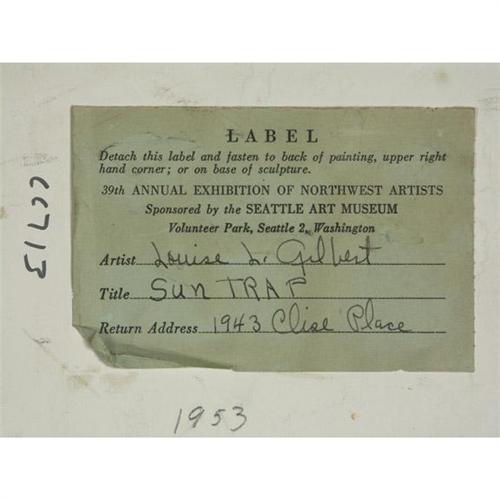 LABEL
Detach this label and fasten to back of painting, upper right
hand corner; or on base of sculpture.
39th ANNUAL EXHIBITION OF NORTHWEST ARTISTS
Sponsored by the SEATTLE ART MUSEUM
Volunteer Park, Seattle 2, Washington
Artist Louise L. Gilbert
Title SUN TRAP
Return Address 1943 Clise Place
1953